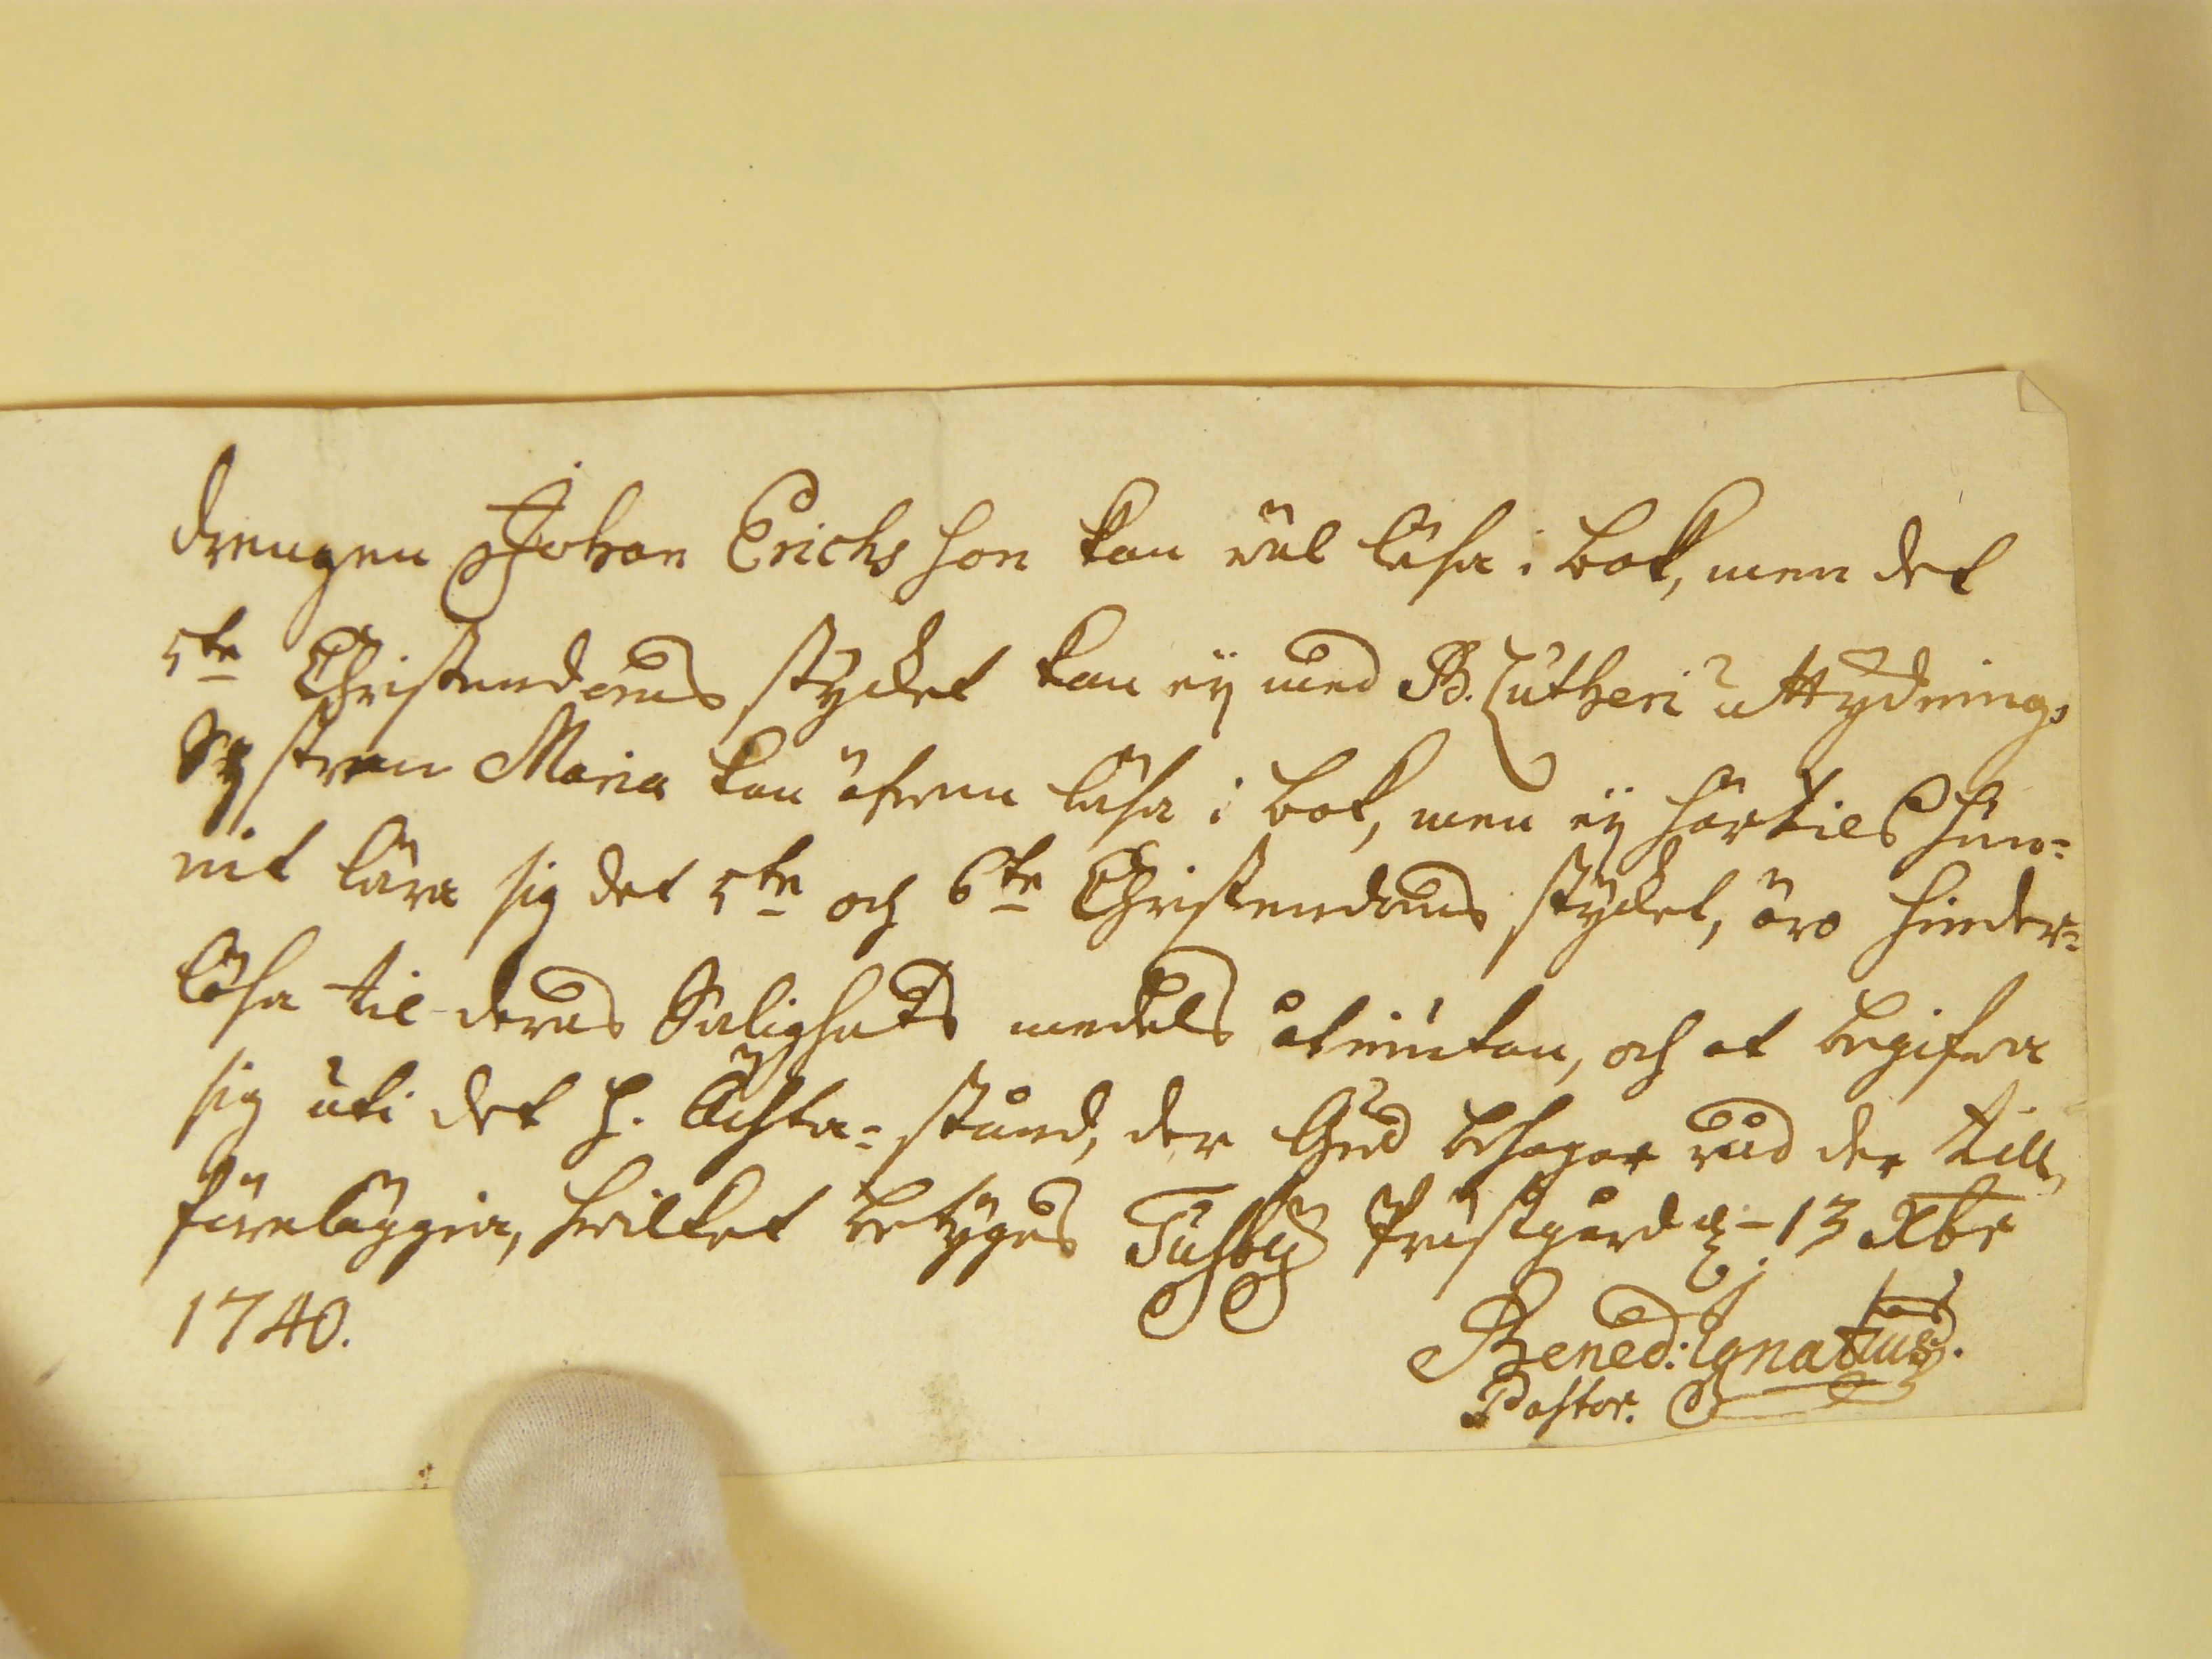 Drengen Johan Erichs son kan väl läsa i bok, men det
5te Christendoms stycket kan ej med B. Lutheri uttydning,
Systren Maria kan äfwen läsa i bok, men ej härtils hun=
nit lära sig det 5te och 6te Christendoms stycket, äro hinder=
lösa til deras Salighets medels åtniutan, och at begifwa
sig uti det H. Ächta=stånd, der Gud behagar råd der till
föreläggia, hwilket betygas Tusby Prästgård d. 13 Xbr
1740.
Benedi: Ignatius.
Pastor.